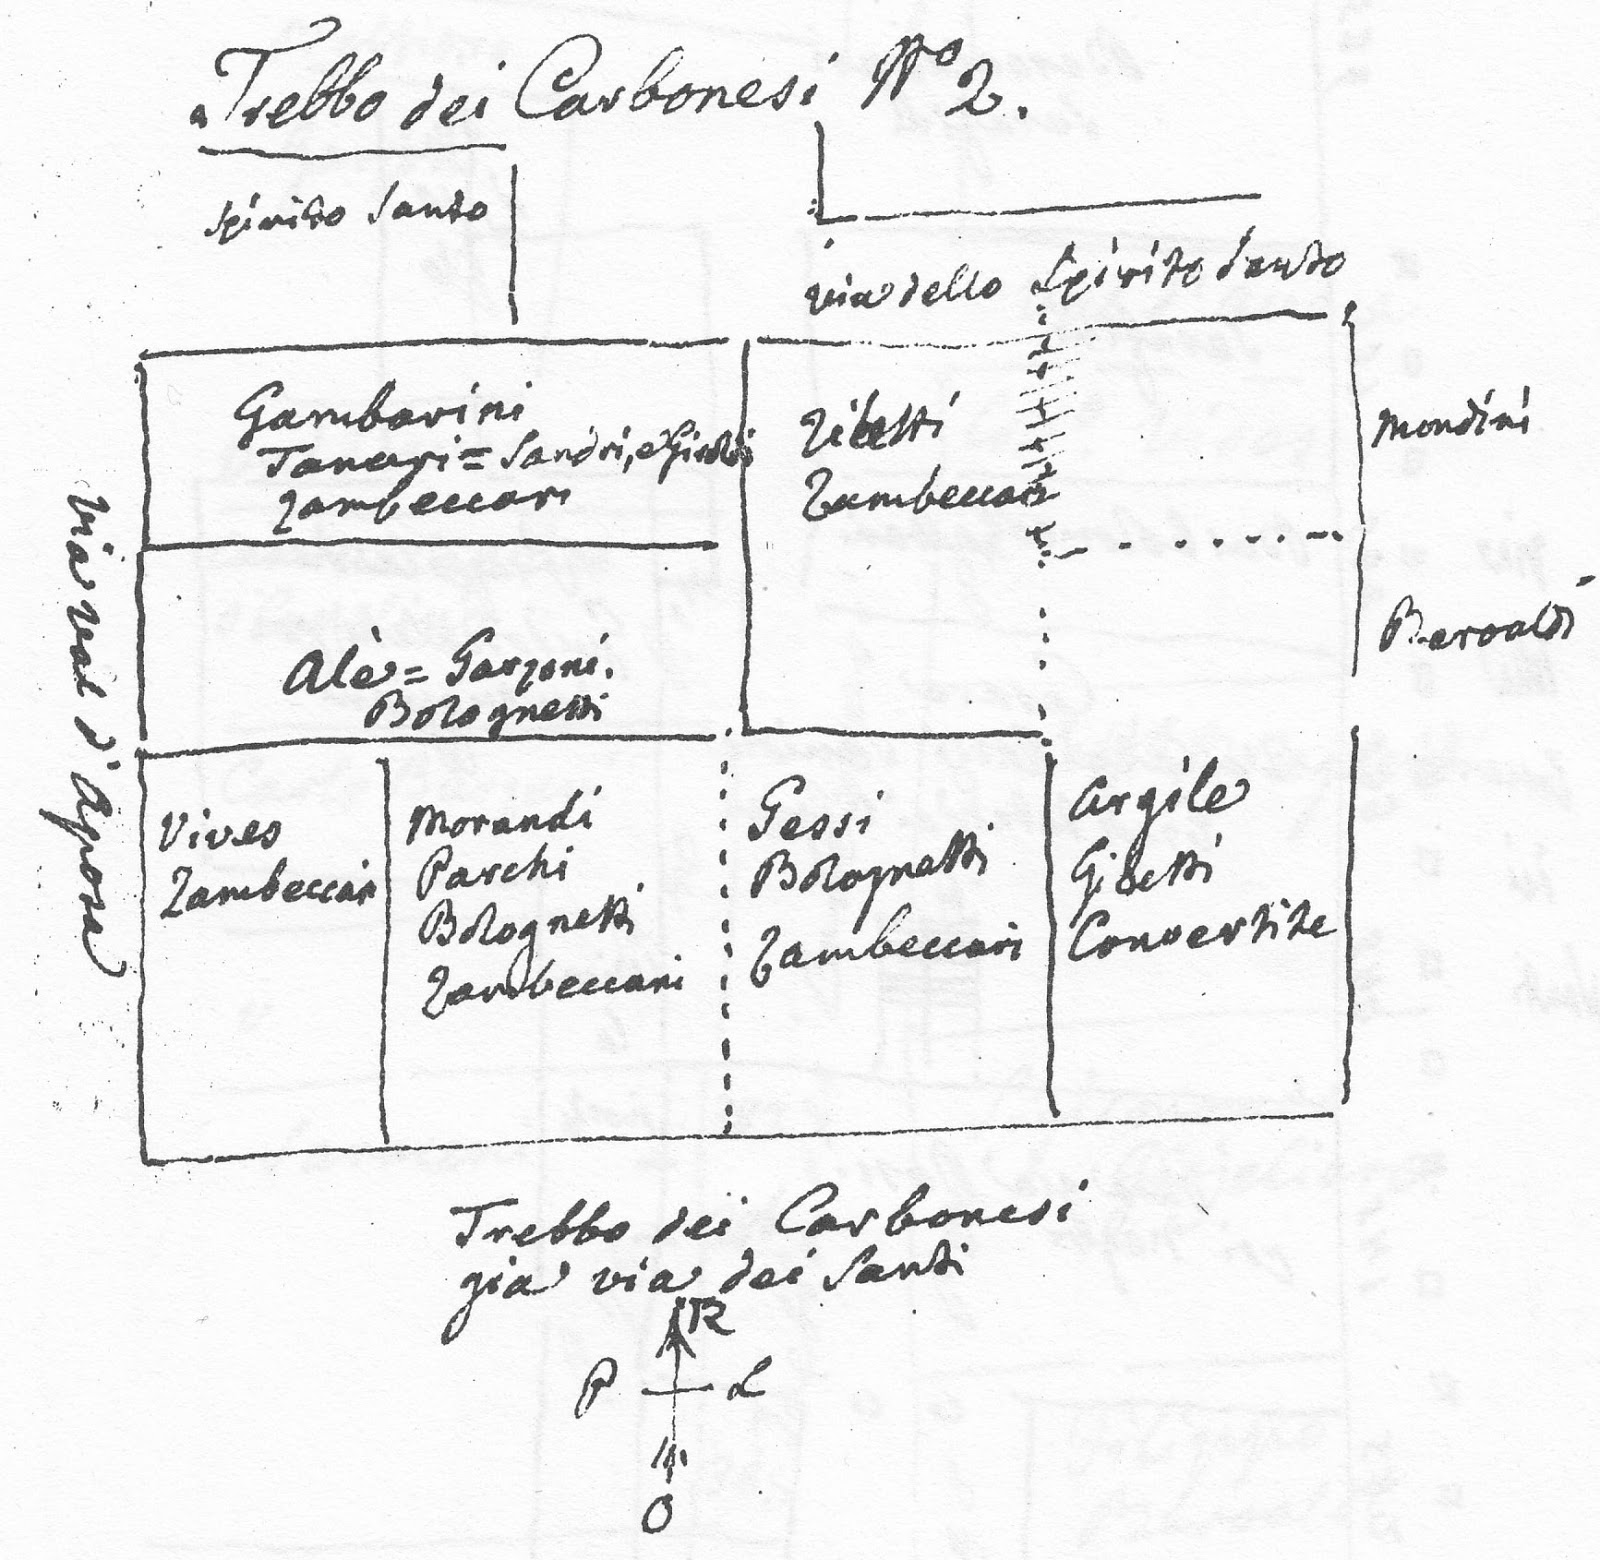 Trebbo dei Carbonesi N.º 2.
Spirito Santo
via dello Spirito Santo
Gambarini
Tanari = Sandri, e
Zambeccari
Zibetti
Zambeccari
Mondini
Alè = Garzoni.
Bolognetti
Beroaldi
via val d'Aposa
Vives
Zambeccari
Morandi
Parchi
Bolognetti
Zambeccari
Gessi
Bolognetti
Zambeccari
Argile
Gibetti
Convertite
Trebbo dei Carbonesi
gia via dei Santi
R
P L
O